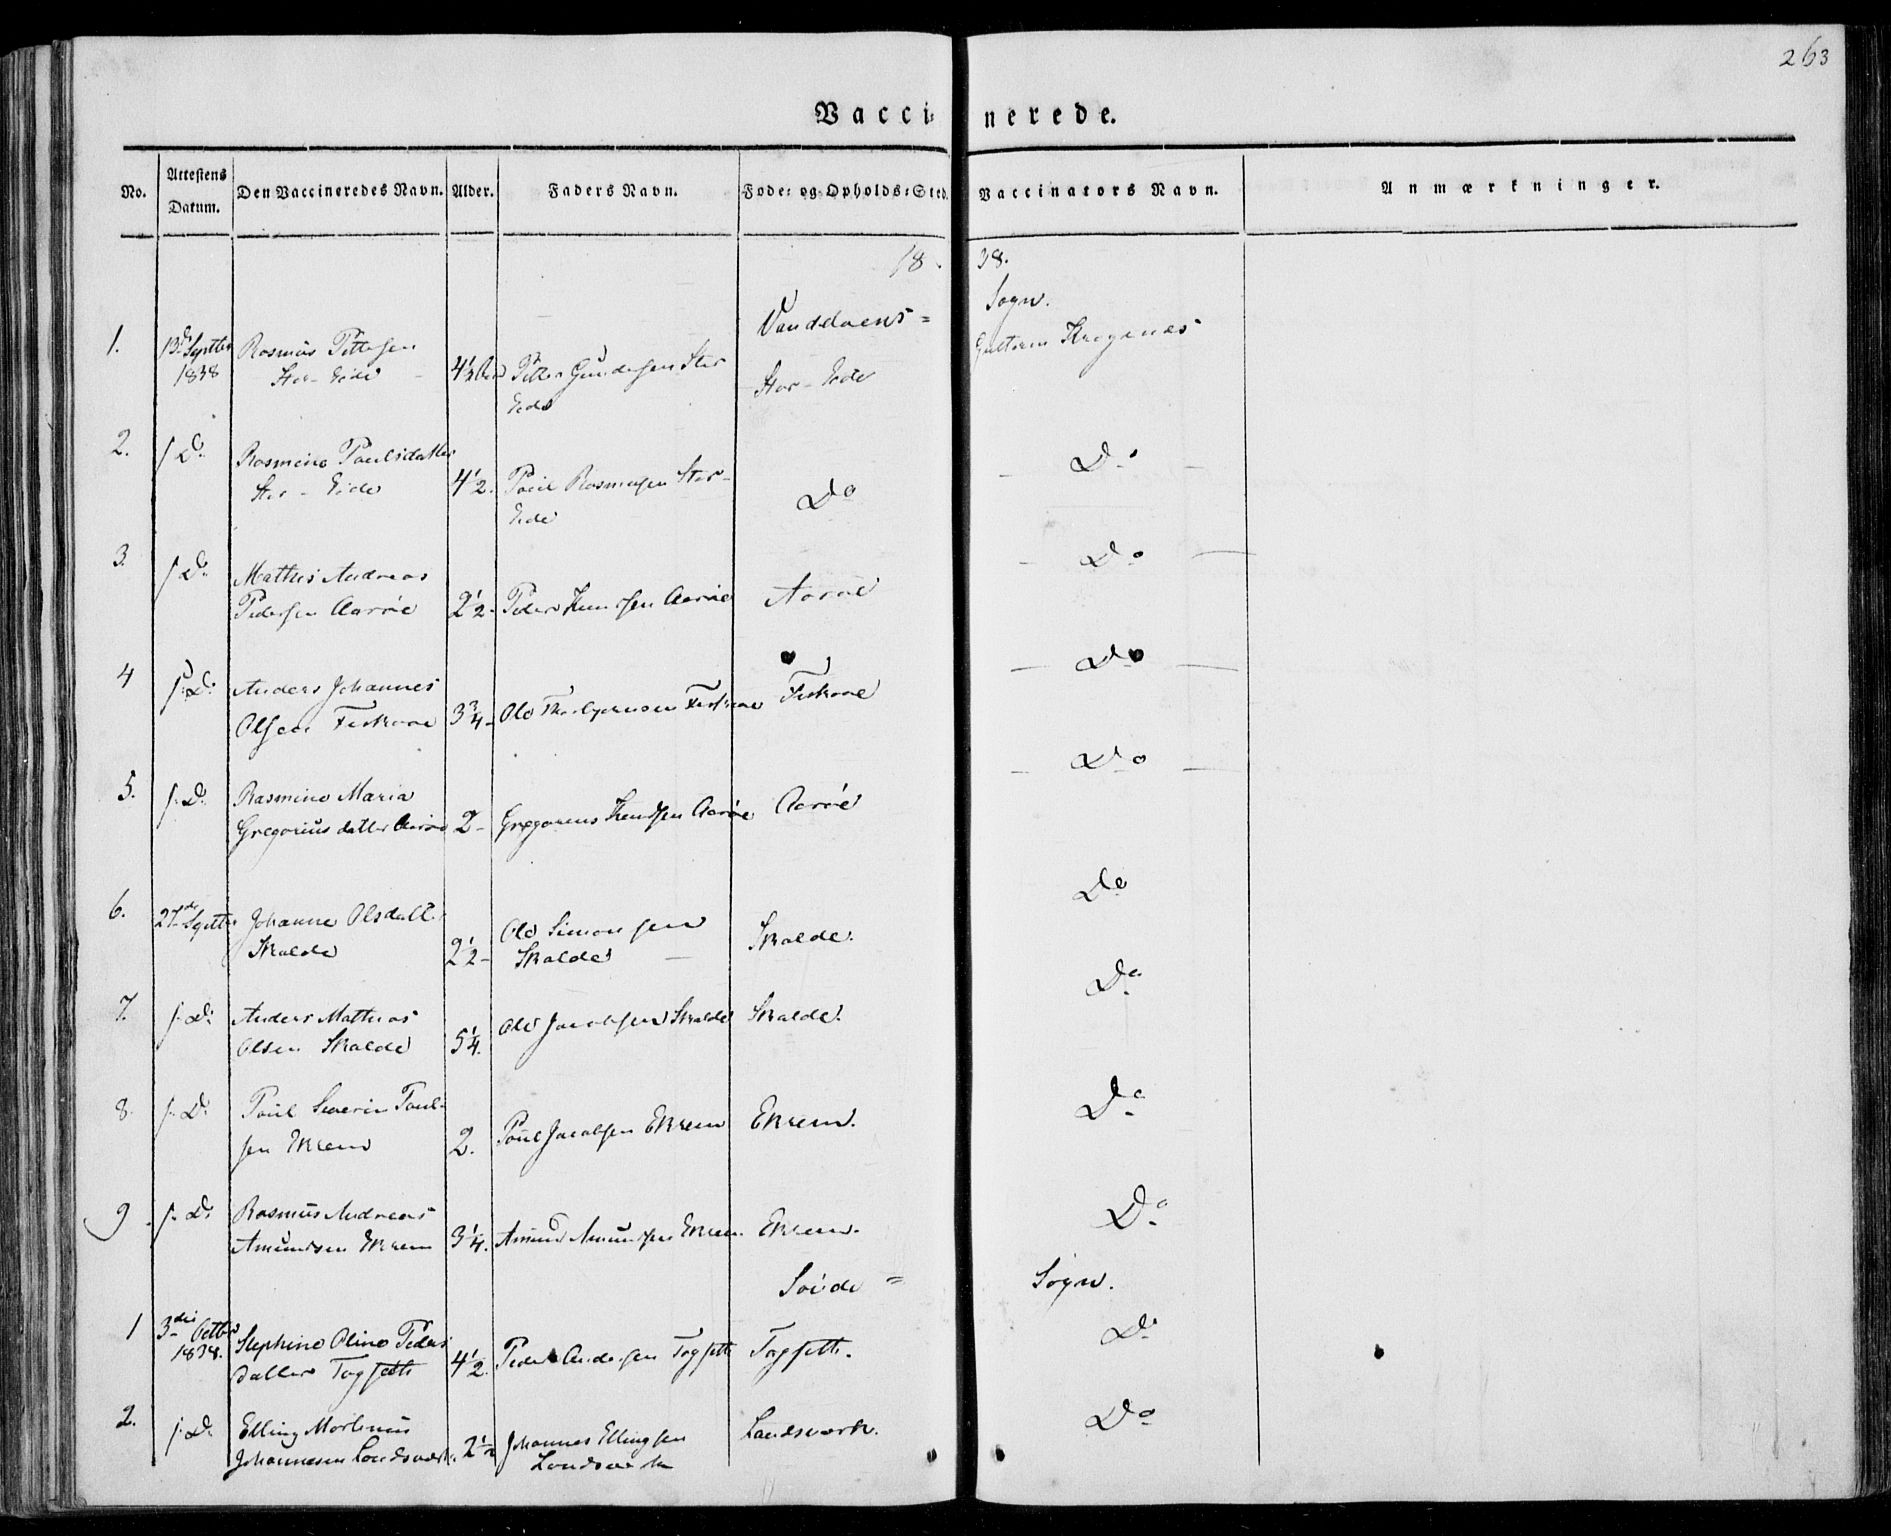 263
Vacci- nerede.
No. Attestens Datum. Den Vaccineredes Navn. Alder. Faders Navn. Føde- og Opholds-Sted. Vaccinators Navn. Anmærkninger.
18 38.
Vanddaens = Sogn.
1. 13de Septbr 1838 Rasmus Pettersen Stor-Eide 4½ Petter Gundersen Stor Eide Stor-Eide Krogenæs
2. f. Do Rasmine Paulsdatter Stor-Eide 4½. Paul Rasmusen Stor-Eide Do Do
3. f. Do Mathis Andreas Pedersen Aarøe 2½- Peder Knudsen Aarøe Aarøe Do
4 f. Do Anders Johannes Olsen Fiskaae 3¾- Ole Thorbjørnsen Fiskaae Fiskaae Do
5. f. Do Rasmine Maria Gregoriusdatter Aarøe 2- Gregorius Knudsen Aarøe Aarøe Do
6. 27de Septbr Johanne Olsdatt. Skalde 2½- Ole Simonsen Skalde Skalde. Do
7. f. Do Anders Mathias Olsen Skalde 5¼. Ole Jacobsen Skalde Skalde. Do
8. f. Do Paul Severin Paulsen Ekrem 2. Paul Jacobsen Ekrem Ekrem. Do
9. f. Do Rasmus Andreas Amundsen Ekrem 3¼. Amund Amundsen Ekrem Ekrem. Do
Søvde = Sogn.
1 3die Octbr 1838. Stephine Oline Peders datter Tagseth 4½. Peder Andersen Tagseth Tagseth. Do
2. f. Do Elling Martinus Johannesen Landsværk. 2½ Johannes Ellingsen Landsværk Landsværk. Do